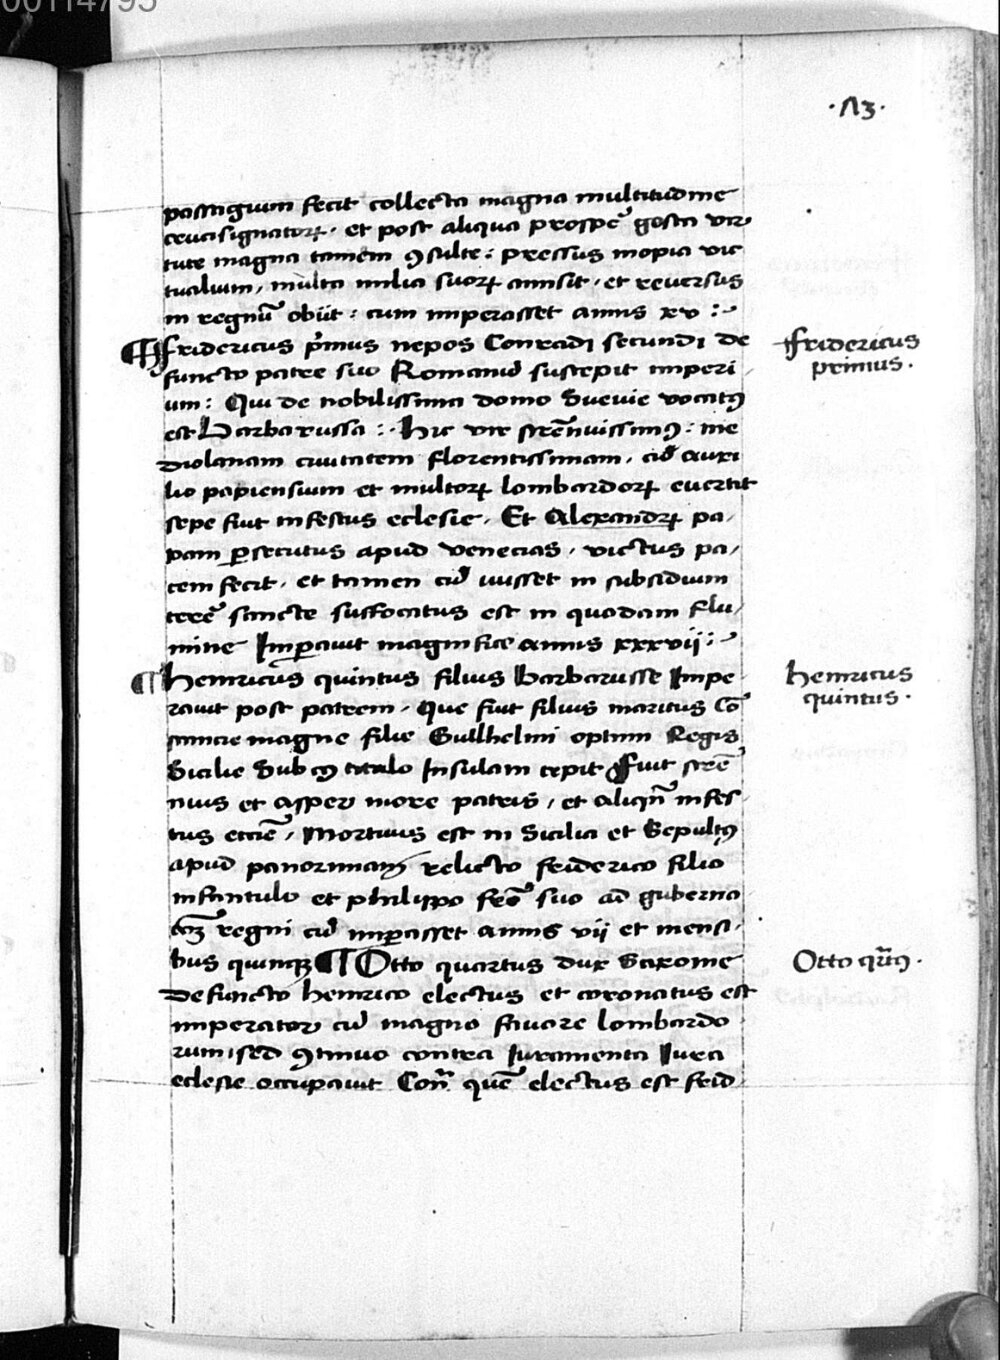 00114795
.73.
passagium fecit collecta magna multitudine
crucisignatorꝝ . et post aliqua prospe᷑ gesta vir
tute magna tamen ꝯsulte : pressus inopia vic
tualium , multa milia suorꝝ amisit . et reversus
in regnū obiit : cum imperasset annis xv :~
¶ ffridericus p̄mus nepos Conradi secundi de
functo patre suo Romanū suscepit imperi
um : Qui de nobilissima domo Suevie vocatꝰ
est Barbarussa : . hic vir strēnuissimꝰ : me
diolanam civitatem florentissimam , cū auxi
lio papiensium et multorꝝ lombardorꝝ evertit
sepe fuit infestus eclesie . Et Alexandrꝝ pa /
pam ꝑsecutus apud venecias , victus pa /
cem fecit . et tamen cū iuisset in subsidium
terre᷑ sancte suffocatus est in quodam flu /
mine Imꝑavit magnifice annis xxxvii :~
¶ henricus quintus filius barbarusse Impe
ravit post patrem . Que fuit filius maritus Cō
stancie magne filie Guilhelmi optimi Regis
Sicilie Sub cꝰ titulo Insulam cepit ffuit strē
nuus et asper more patris , et aliqn̄ infes
tus eccīe , Mortuus est in Sicilia et Sepultꝰ
apud panormiam relicto friderico filio
infantulo et philippo frē suo ad guberna
cōꝫ regni cū imꝑasset annis vii et mensi .
bus quinqꝫ ¶ Otto quartus dux Saxonie
defuncto henrico electus et coronatus est
imperator cū magno favore lombardo
rum , sed ꝯtinuo contra Iuramenta Iura
eclesie occupavit Con̄ quē electus est frid .
ffridericus
primus .
henricus
quintus .
Otto qr̄tꝰ .